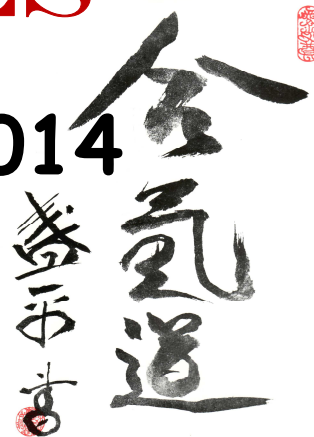 es
014
合氣道
盛平書